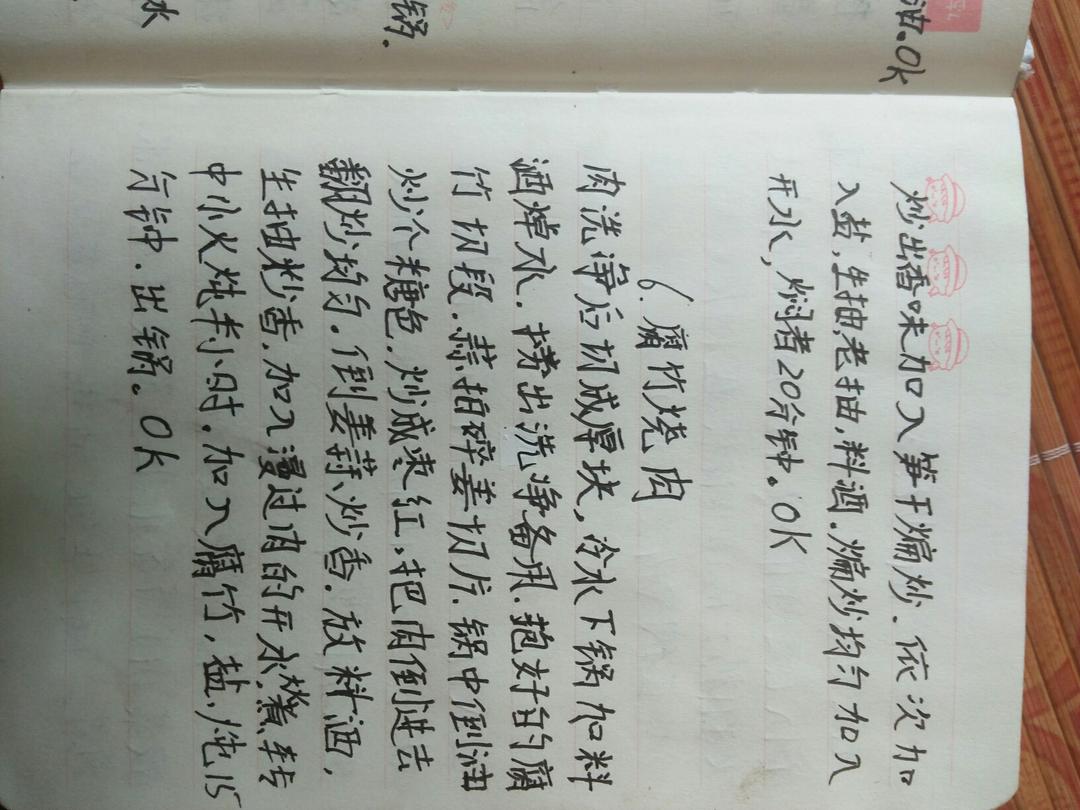 油。Ok
锅.
水
炒出香味加入笋干煸炒.依次加
入盐,生抽,老抽,料酒.煸炒均匀加入
开水,焖者20分钟。OK
6.腐竹烧肉
肉洗净后切成厚块,冷水下锅加料
酒焯水.捞出洗净备用.抱好的腐
竹切段.蒜拍碎姜切片.锅中倒油
炒个糖色.炒成枣红,把肉倒进去
翻炒均匀.倒姜蒜炒香.放料酒,
生抽炒香.加入漫过肉的开水煮转
中小火炖半小时.加入腐竹,盐,炖15
分钟.出锅。Ok